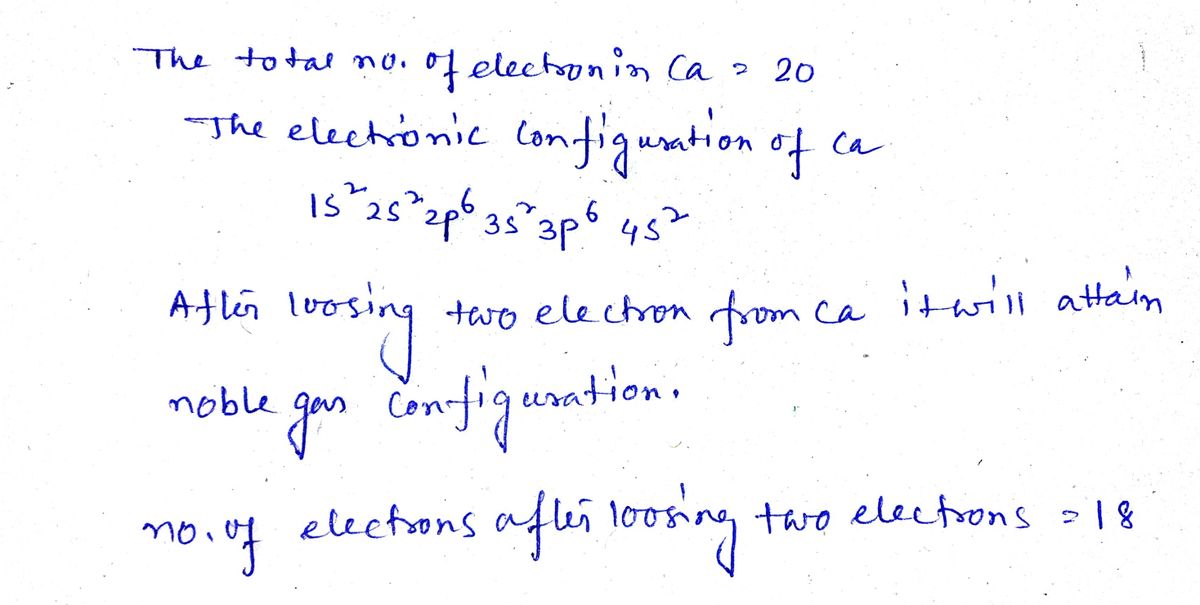 The total no. of electron in Ca = 20
The electronic configuration of Ca
1s²2s²2p⁶3s²3p⁶4s²
After loosing two electron from Ca it will attain
noble gas configuration.
no. of electrons after loosing two electrons = 18